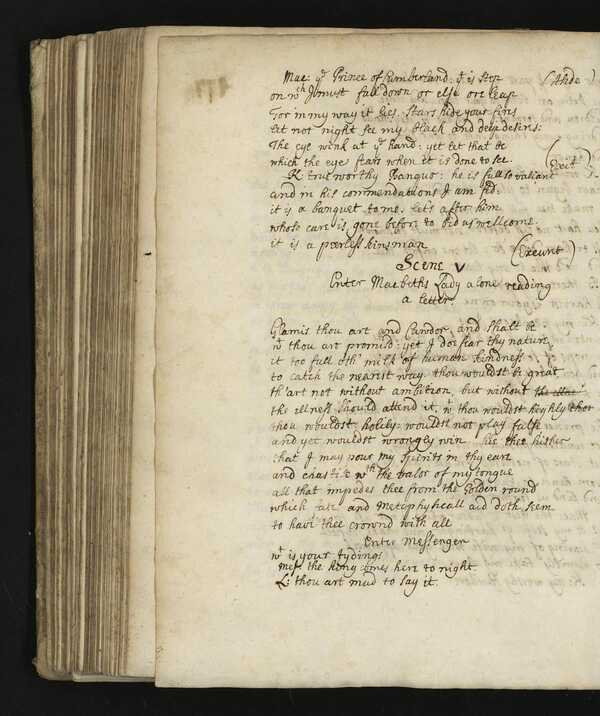 Mac: yͤ Prince of Cumberland: yͭ is step (Aside)
on wͨͪ I must fall down or else ore leap
For in my way it lies. Stars hide your fires
let not night see my black and deep desires:
The eye wink at yͤ hand: yet let that be
which the eye fears when it is done to see. (Exit)
K: true worthy Banquo: he is full so valiant
and in his commendations I am fed.
it is a banquet to me. let's after him
whose care is gone before to bid us wellcome.
it is a peerless kinsman (Exeunt)
Scene V
Enter Macbeths Lady alone reading
a letter.
Glamis thou art and Cawdor, and shalt be
wͭ thou art promisd: yet I doe fear thy nature
it too full oth' milk of human kindness
to catch the nearest way. thou wouldst be great
th'art not without ambition, but without
the illness should attend it. wͭ thou wouldst highly
thou wouldst holily: wouldst not play false
and yet wouldst wrongly win. hie thee hither
that I may pour my spirits in thy eare
and chastise wͭͪ the valor of my tongue
all that impedes thee from the Golden round
which fate and Metaphysicall aid doth seem
to have thee crownd with all
Enter Messenger
wͭ is your tydings
Mes: the king comes here to night
L: thou art mad to say it.